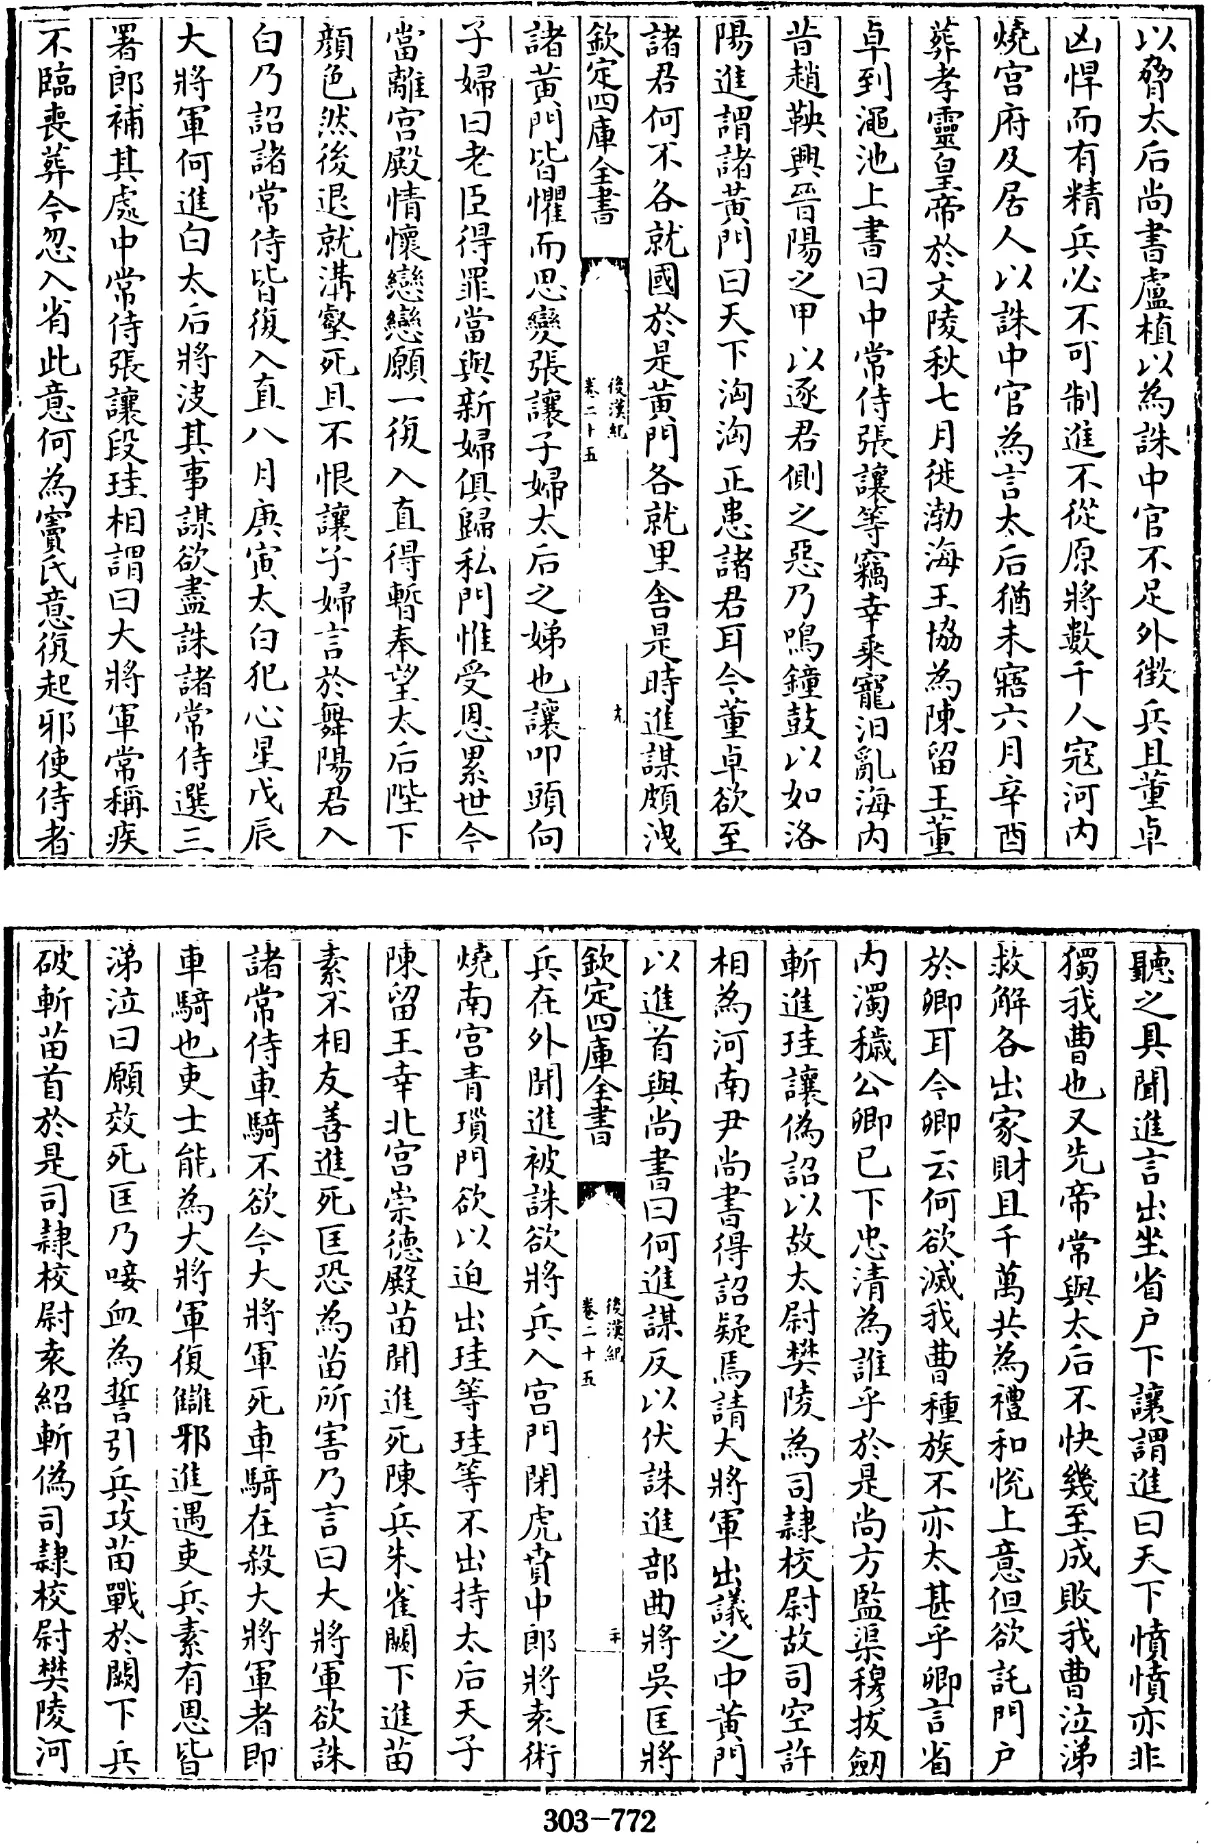 以脅太后尚書盧植以為誅中官不足外徵兵且董卓
凶悍而有精兵必不可制進不從原將數千人寇河内
燒宫府及居人以誅中官為言太后猶未寤六月辛酉
葬孝靈皇帝於文陵秋七月徙渤海王協為陳留王董
卓到澠池上書曰中常侍張讓等竊幸乘寵汨亂海内
昔趙鞅興晉陽之甲以逐君側之惡乃鳴鐘鼓以如洛
陽進謂諸黄門曰天下洶洶正患諸君耳今董卓欲至
諸君何不各就國於是黄門各就里舍是時進謀頗洩
欽定四庫全書
後漢紀
卷二十五
九
諸黄門皆懼而思變張讓子婦太后之娣也讓叩頭向
子婦曰老臣得罪當與新婦俱歸私門惟受恩累世今
當離宫殿情懷戀戀願一復入直得暫奉望太后陛下
顔色然後退就溝壑死且不恨讓子婦言於舞陽君入
白乃詔諸常侍皆復入直八月庚寅太白犯心星戊辰
大將軍何進白太后將决其事謀欲盡誅諸常侍選三
署郎補其處中常侍張讓段珪相謂曰大將軍常稱疾
不臨喪葬今忽入省此意何為竇氏意復起邪使侍者
聽之具聞進言出坐省户下讓謂進曰天下憤憤亦非
獨我曹也又先帝常與太后不快幾至成敗我曹泣涕
救解各出家財且千萬共為禮和悦上意但欲託門户
於卿耳今卿云何欲滅我曹種族不亦太甚乎卿言省
内濁穢公卿已下忠清為誰乎於是尚方監渠穆拔劒
斬進珪讓偽詔以故太尉樊陵為司隸校尉故司空許
相為河南尹尚書得詔疑焉請大將軍出議之中黄門
以進首與尚書曰何進謀反以伏誅進部曲將吳匡將
欽定四庫全書
後漢紀
卷二十五
二十
兵在外聞進被誅欲將兵入宫門閉虎賁中郎將袁術
燒南宫青瑣門欲以迫出珪等珪等不出持太后天子
陳留王幸北宫崇德殿苗聞進死陳兵朱雀闕下進苗
素不相友善進死匡恐為苗所害乃言曰大將軍欲誅
諸常侍車騎不欲今大將軍死車騎在殺大將軍者即
車騎也吏士能為大將軍復讎邪進遇吏兵素有恩皆
涕泣曰願效死匡乃唼血為誓引兵攻苗戰於闕下兵
破斬苗首於是司隸校尉袁紹斬偽司隸校尉樊陵河
303-772